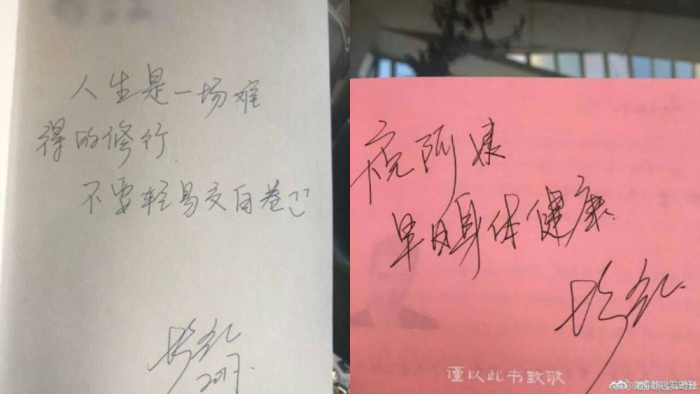 人生是一场难
得的修行
不要轻易交白卷
2017.
祝阿姨
早日身体健康
谨以此书致敬